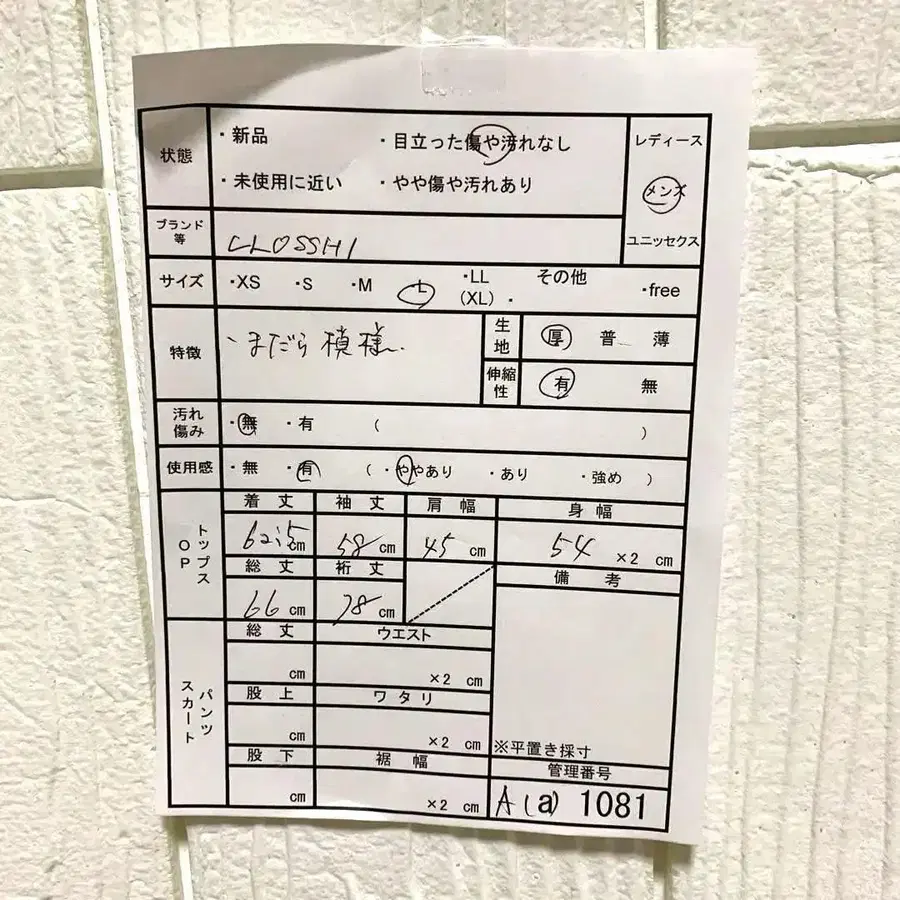 状態
・新品 ・目立った傷や汚れなし
・未使用に近い ・やや傷や汚れあり
レディース
メンズ
ユニッセクス
ブランド等
CLOSSHI
サイズ ・XS ・S ・M ・L ・LL (XL) ・その他 ・free
特徴
、まだら模様.
生地 厚 普 薄
伸縮性 有 無
汚れ傷み ・無 ・有 ( )
使用感 ・無 ・有 ( ・ややあり ・あり ・強め )
トップスOP
着丈 袖丈 肩幅 身幅
62.5cm 58cm 45cm 54 ×2 cm
総丈 裄丈 備考
66cm 78cm
パンツスカート
総丈 ウエスト
cm ×2 cm
股上 ワタリ
cm ×2 cm
股下 裾幅
cm ×2 cm
※平置き採寸
管理番号
A(a) 1081